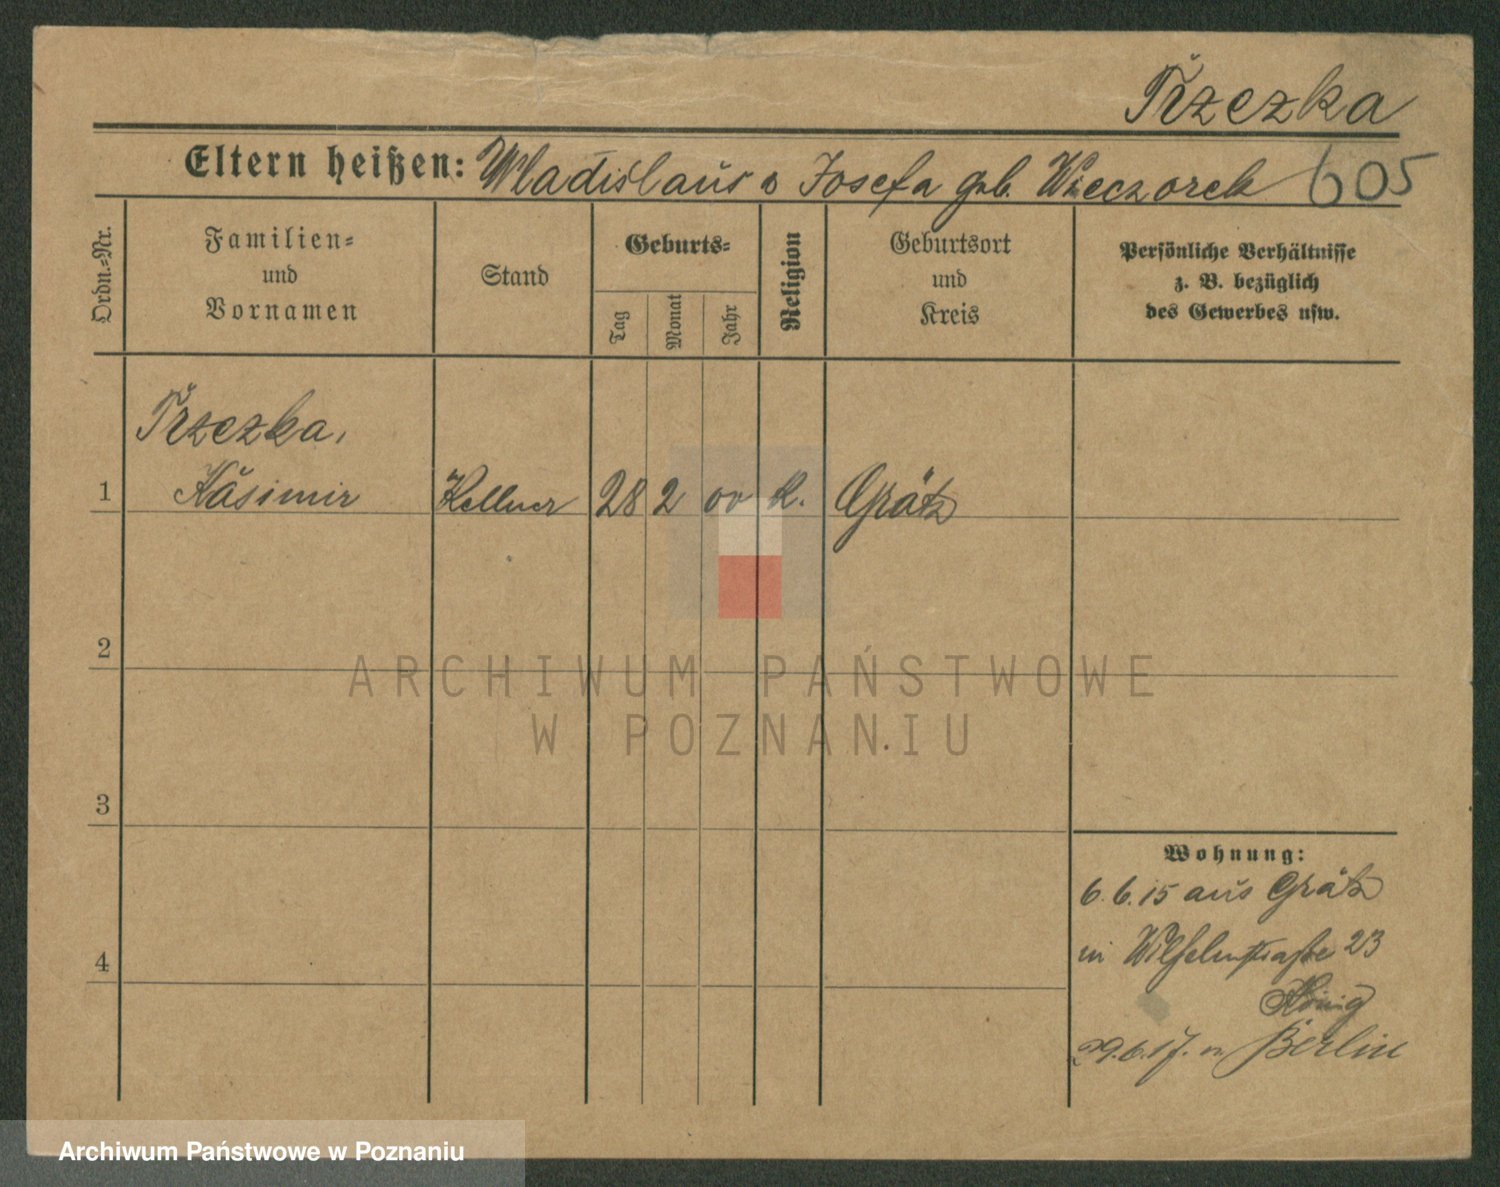 Trzezka
Eltern heißen: Wladislaus u Josefa geb. Wieczorek 605
Ordn.-Nr.
Familien-
und
Vornamen
Stand
Geburts-
Tag
Monat
Jahr
Religion
Geburtsort
und
Kreis
Persönliche Verhältnisse
z. B. bezüglich
des Gewerbes usw.
Trzezka,
1 Kasimir Kellner 28 2 00 K. Grätz
2
ARCHIWUM PAŃSTWOWE
W POZNANIU
3
Wohnung:
6.6.15 aus Grätz
in Wilhelmstraße 23
König
4
29.6.17. n Berlin
Archiwum Państwowe w Poznaniu